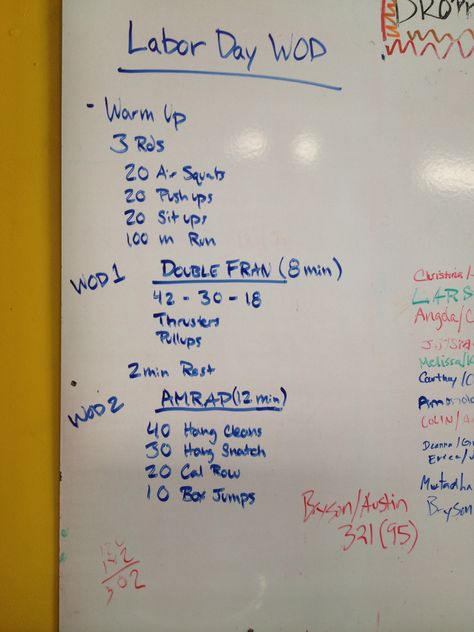 Labor Day WOD
- Warm Up
3 Rds
20 Air Squats
20 Push ups
20 Sit ups
100 m Run
WOD 1 DOUBLE FRAN (8 min)
42 - 30 - 18
Thrusters
Pullups
2 min Rest
WOD 2 AMRAP (12 min)
40 Hang Cleans
30 Hang Snatch
20 Cal Row
10 Box Jumps
Bryson/Austin
321 (95)
302
DROM
Christina/
LARS
Angela/C
Melissa/K
Courtney/C
COLIN/
Deanna/G
Erica/J
Mustadha
Bryson